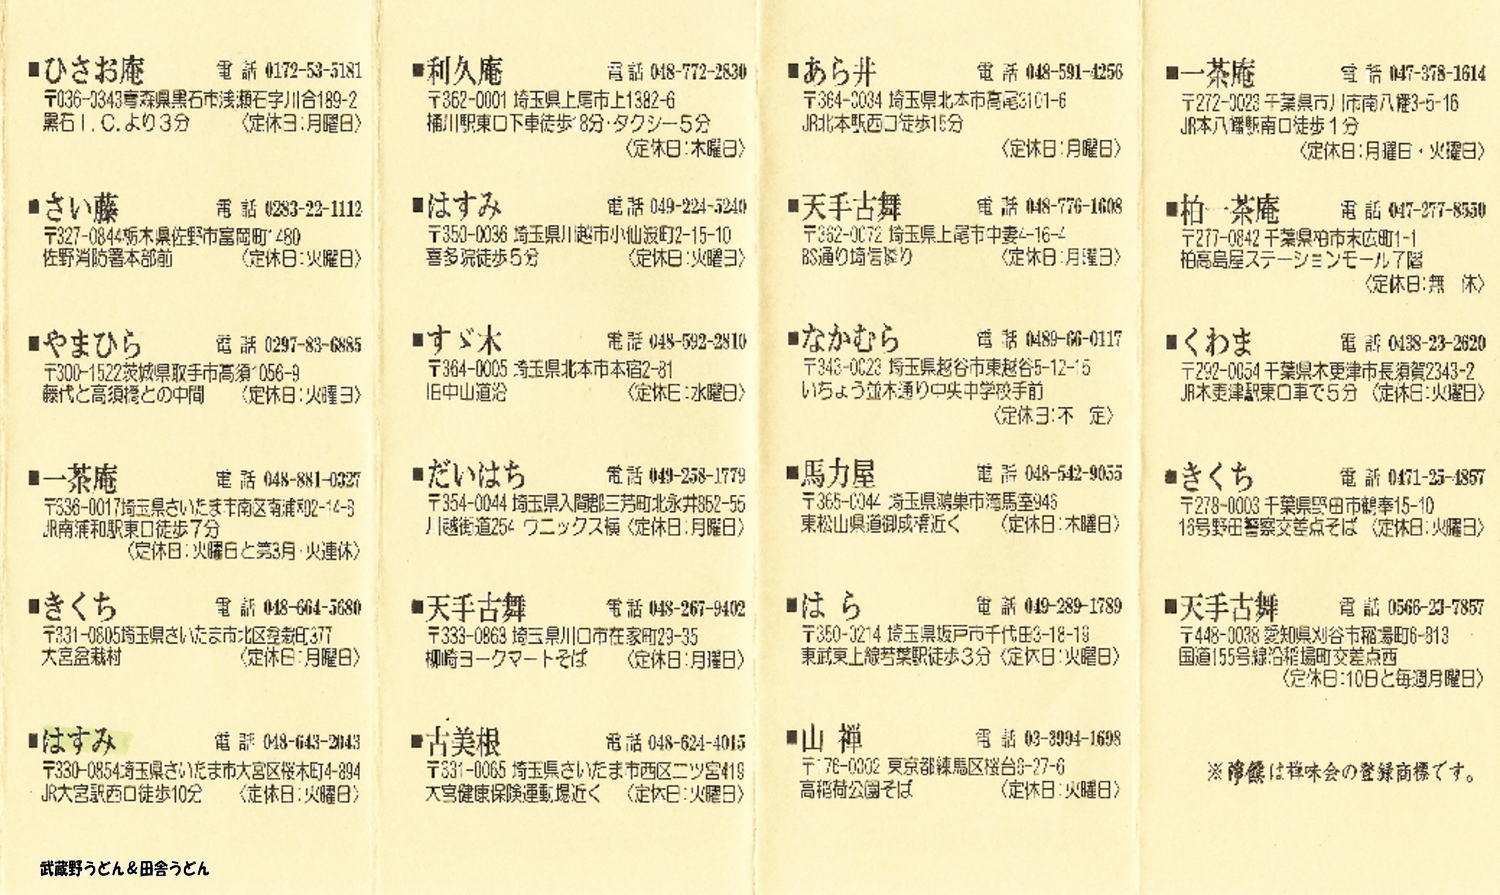 ■ひさお庵 電話 0172-53-5181
〒036-0343青森県黒石市浅瀬石字川合189-2
黒石I.C.より3分 〈定休日:月曜日〉
■さい藤 電話 0283-22-1112
〒327-0844栃木県佐野市富岡町1480
佐野消防署本部前 〈定休日:火曜日〉
■やまひら 電話 0297-83-6885
〒300-1522茨城県取手市高須1056-9
藤代と高須橋との中間 〈定休日:火曜日〉
■一茶庵 電話 048-881-0327
〒336-0017埼玉県さいたま市南区南浦和2-14-8
JR南浦和駅東口徒歩7分
〈定休日:火曜日と第3月・火連休〉
■きくち 電話 048-664-5680
〒331-0805埼玉県さいたま市北区盆栽町377
大宮盆栽村 〈定休日:月曜日〉
■はすみ 電話 048-643-2043
〒330-0854埼玉県さいたま市大宮区桜木町4-894
JR大宮駅西口徒歩10分 〈定休日:火曜日〉
■利久庵 電話 048-772-2830
〒362-0001 埼玉県上尾市上1382-6
桶川駅東口下車徒歩18分・タクシー5分
〈定休日:木曜日〉
■はすみ 電話 049-224-5240
〒350-0036 埼玉県川越市小仙波町2-15-10
喜多院徒歩5分 〈定休日:火曜日〉
■すゞ木 電話 048-592-2810
〒364-0005 埼玉県北本市本宿2-81
旧中山道沿 〈定休日:水曜日〉
■だいはち 電話 049-258-1779
〒354-0044 埼玉県入間郡三芳町北永井852-55
川越街道254 ウニックス横 〈定休日:月曜日〉
■天手古舞 電話 048-267-9402
〒333-0863 埼玉県川口市在家町29-35
柳崎ヨークマートそば 〈定休日:月曜日〉
■古美根 電話 048-624-4015
〒331-0065 埼玉県さいたま市西区二ツ宮419
大宮健康保険運動場近く 〈定休日:火曜日〉
■あら井 電話 048-591-4256
〒364-0034 埼玉県北本市高尾3101-6
JR北本駅西口徒歩15分
〈定休日:月曜日〉
■天手古舞 電話 048-776-1608
〒362-0072 埼玉県上尾市中妻4-16-4
BS通り埼信隣り 〈定休日:月曜日〉
■なかむら 電話 0489-66-0117
〒343-0023 埼玉県越谷市東越谷5-12-15
いちょう並木通り中央中学校手前
〈定休日:不 定〉
■馬力屋 電話 048-542-9055
〒365-0044 埼玉県鴻巣市滝馬室946
東松山県道御成橋近く 〈定休日:木曜日〉
■はら 電話 049-289-1789
〒350-0214 埼玉県坂戸市千代田3-18-19
東武東上線若葉駅徒歩3分 〈定休日:火曜日〉
■山禅 電話 03-3994-1698
〒176-0002 東京都練馬区桜台6-27-6
高稲荷公園そば 〈定休日:火曜日〉
■一茶庵 電話 047-378-1614
〒272-0023 千葉県市川市南八幡3-5-16
JR本八幡駅南口徒歩1分
〈定休日:月曜日・火曜日〉
■柏一茶庵 電話 047-277-8550
〒277-0842 千葉県柏市末広町1-1
柏高島屋ステーションモール7階
〈定休日:無 休〉
■くわま 電話 0438-23-2620
〒292-0054 千葉県木更津市長須賀2343-2
JR木更津駅東口車で5分 〈定休日:火曜日〉
■きくち 電話 0471-25-4857
〒278-0003 千葉県野田市鶴奉15-10
16号野田警察交差点そば 〈定休日:火曜日〉
■天手古舞 電話 0566-23-7857
〒448-0038 愛知県刈谷市稲場町6-813
国道155号線沿稲場町交差点西
〈定休日:10日と毎週月曜日〉
は禅味会の登録商標です。
武蔵野うどん&田舎うどん